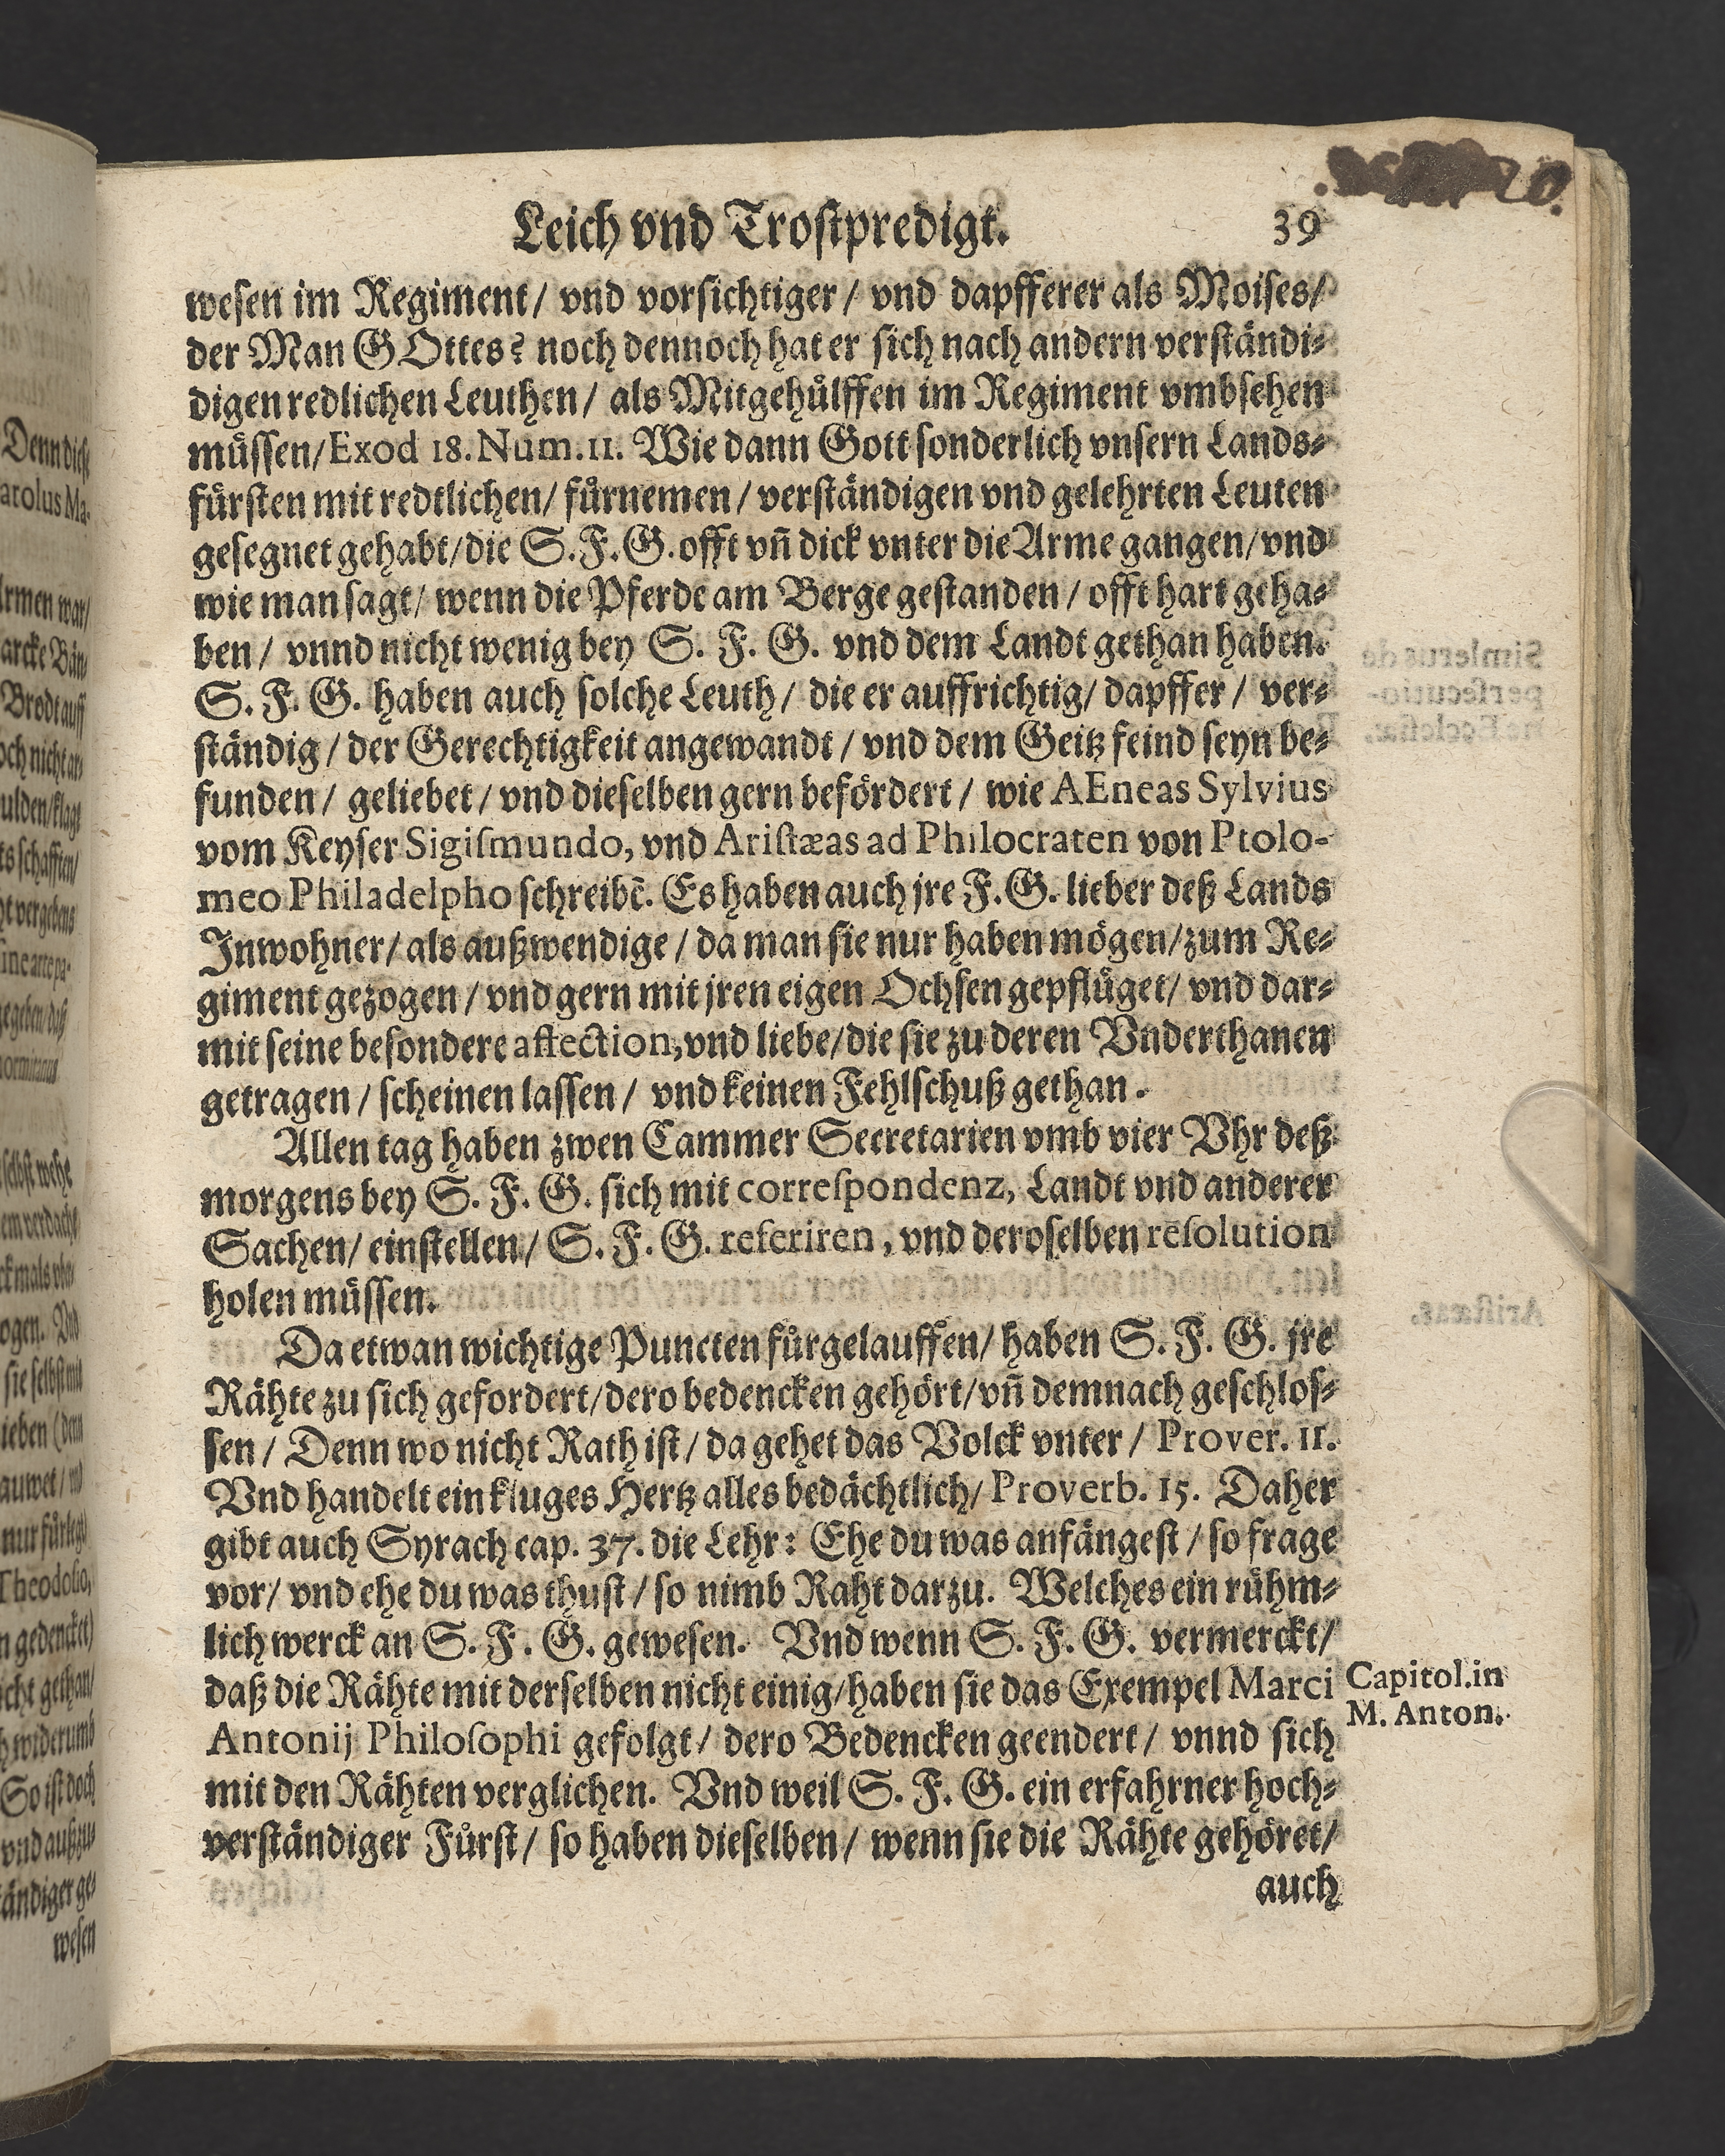 Leich vnd Trostpredigt. 39
wesen im Regiment/ vnd vorsichtiger/ vnd dapfferer als Moises/
der Man GOttes? noch dennoch hat er sich nach andern verständi-
digen redlichen Leuthen/ als Mitgehuͤlffen im Regiment vmbsehen
muͤssen/ Exod 18. Num. 11. Wie dann Gott sonderlich vnsern Lands-
fuͤrsten mit redtlichen/ fuͤrnemen/ verständigen vnd gelehrten Leuten
gesegnet gehabt/ die S. F. G. offt vñ dick vnter die Arme gangen/ vnd
wie man sagt/ wenn die Pferde am Berge gestanden/ offt hart geha-
ben/ vnnd nicht wenig bey S. F. G. vnd dem Landt gethan haben.
S. F. G. haben auch solche Leuth/ die er auffrichtig/ dapffer/ ver-
ständig/ der Gerechtigkeit angewandt/ vnd dem Geitz feind seyn be-
funden/ geliebet/ vnd dieselben gern befördert/ wie AEneas Sylvius
vom Keyser Sigiſmundo, vnd Ariſtæas ad Philocraten von Ptolo-
meo Philadelpho schreibẽ. Es haben auch jre F. G. lieber deß Lands
Inwohner/ als außwendige/ da man sie nur haben mögen/ zum Re-
giment gezogen/ vnd gern mit jren eigen Ochsen gepfluͤget/ vnd dar-
mit seine besondere affection, vnd liebe/ die sie zu deren Vnderthanen
getragen/ scheinen lassen/ vnd keinen Fehlschuß gethan.
Allen tag haben zwen Cammer Secretarien vmb vier Vhr deß
morgens bey S. F. G. sich mit correſpondenz, Landt vnd anderer
Sachen/ einstellen/ S. F. G. referiren, vnd deroselben reſolution
holen muͤssen.
Da etwan wichtige Puncten fuͤrgelauffen/ haben S. F. G. jre
Rähte zu sich gefordert/ dero bedencken gehört/ vñ demnach geschlos-
sen/ Denn wo nicht Rath ist/ da gehet das Volck vnter/ Prover. 11.
Vnd handelt ein kluges Hertz alles bedächtlich/ Proverb. 15. Daher
gibt auch Syrach cap. 37. die Lehr: Ehe du was anfängest/ so frage
vor/ vnd ehe du was thust/ so nimb Raht darzu. Welches ein ruͤhm-
lich werck an S. F. G. gewesen. Vnd wenn S. F. G. vermerckt/
daß die Rähte mit derselben nicht einig/ haben sie das Exempel Marci
Antonij Philoſophi gefolgt/ dero Bedencken geendert/ vnnd sich
mit den Rähten verglichen. Vnd weil S. F. G. ein erfahrner hoch-
verständiger Fuͤrst/ so haben dieselben/ wenn sie die Rähte gehöret/
auch
Capitol. in
M. Anton.
Denn diese
arolus Ma-
Brodt auff
och nicht
ulden/klagt
schaffen/
vergebens
sie selbst mit
Theodoſio,
gedencket)
gethan/
widerumb
So ist doch
ständiger ge-
wesen